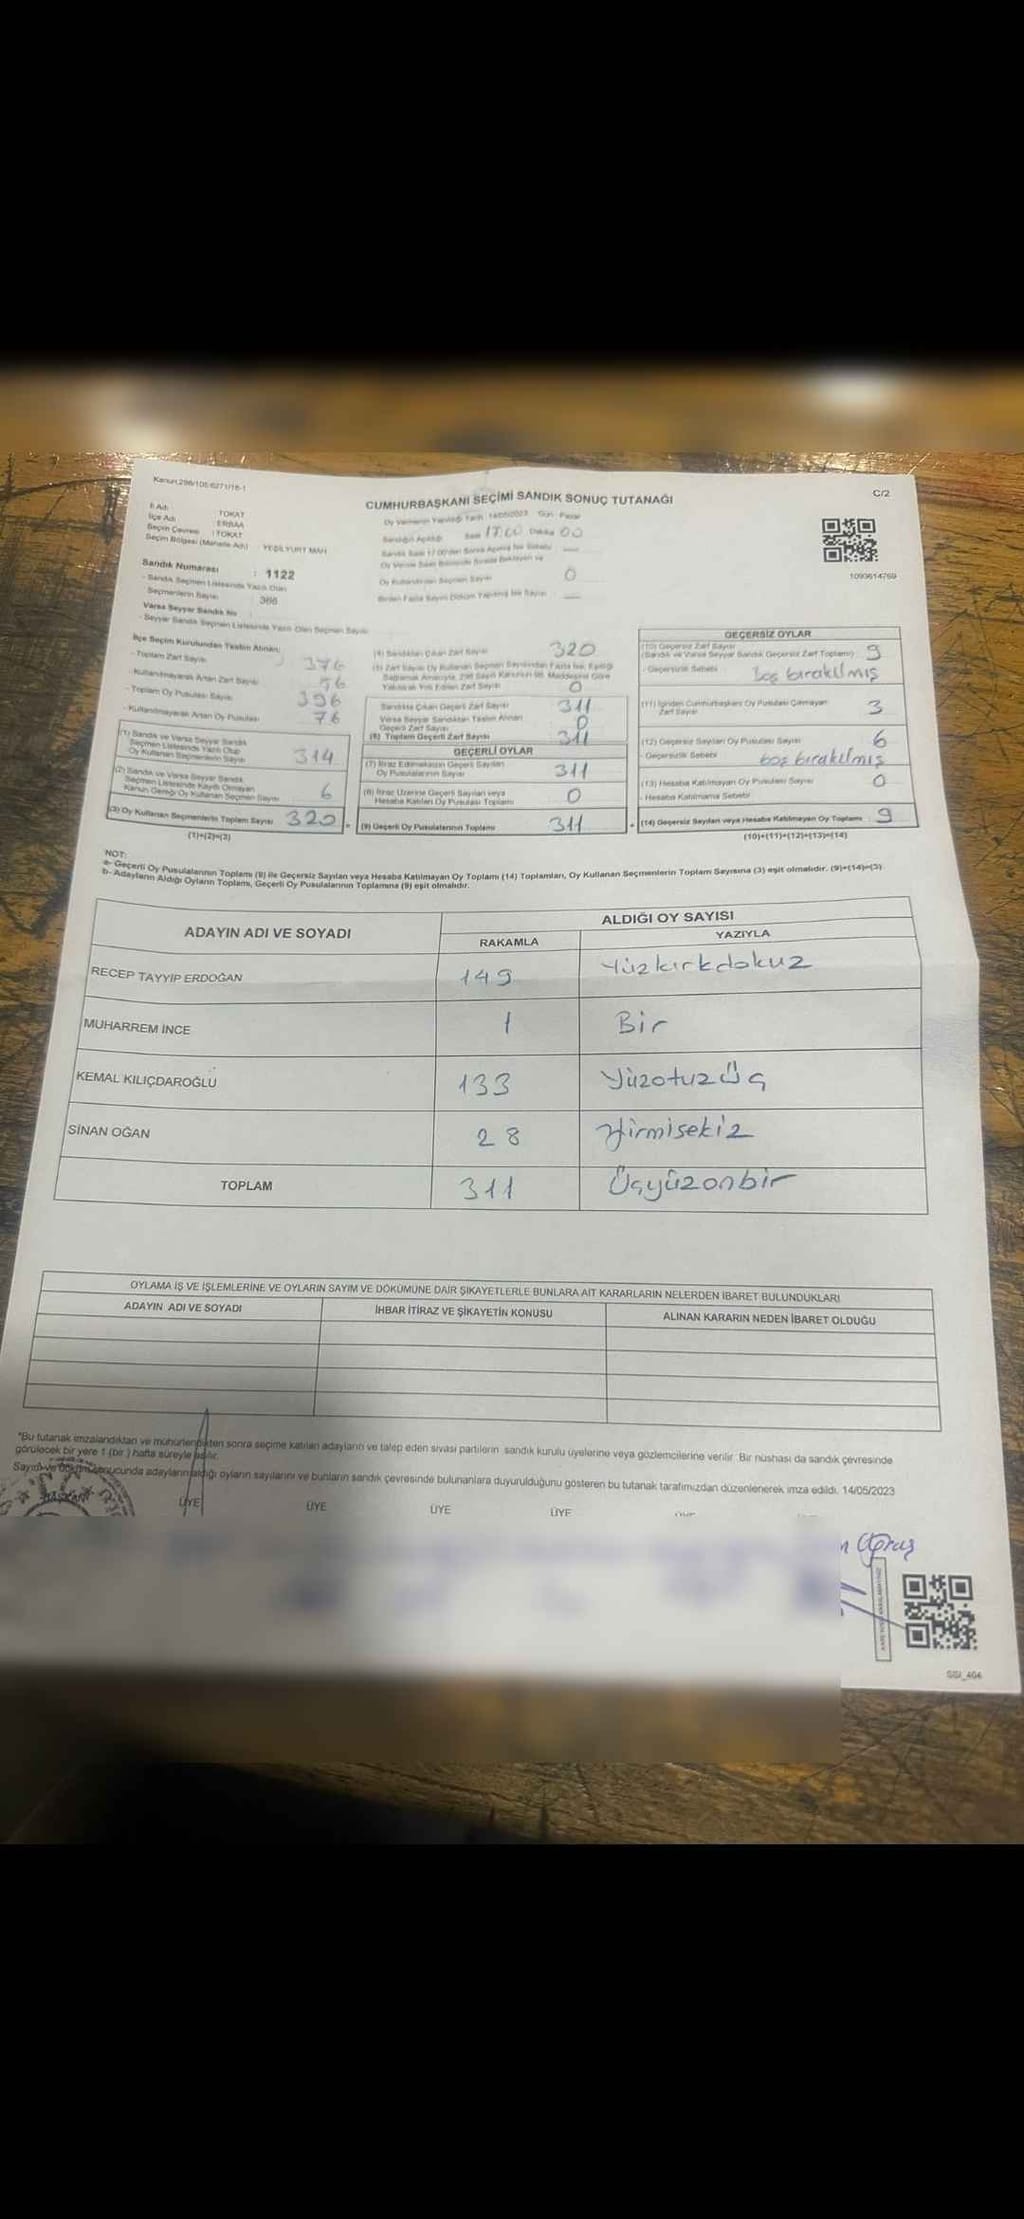 Kanun:298/105 6271/16-1
C/2
CUMHURBAŞKANI SEÇİMİ SANDIK SONUÇ TUTANAĞI
İl Adı : TOKAT
İlçe Adı : ERBAA
Seçim Çevresi : TOKAT
Seçim Bölgesi (Mahalle Adı) : YEŞİLYURT MAH
Sandık Numarası : 1122
- Sandık Seçmen Listesinde Yazılı Olan
Seçmenlerin Sayısı : 366
Varsa Seyyar Sandık No
- Seyyar Sandık Seçmen Listesinde Yazılı Olan Seçmen Sayısı
Oy Vermenin Yapıldığı Tarih 14/05/2023 Gün : Pazar
Sandığın Açıldığı Saat 17:00 Dakika 00
Oy Kullandırılan Seçmen Sayısı 0
Birden Fazla Sayım Döküm Yapılmış İse Sayısı
1093614769
İlçe Seçim Kurulundan Teslim Alınan;
- Toplam Zarf Sayısı 376
- Kullanılmayarak Artan Zarf Sayısı 56
- Toplam Oy Pusulası Sayısı 396
- Kullanılmayarak Artan Oy Pusulası 76
(1) Sandık ve Varsa Seyyar Sandık
Seçmen Listesinde Yazılı Olup
Oy Kullanan Seçmenlerin Sayısı 314
(2) Sandık ve Varsa Seyyar Sandık
Seçmen Listesinde Kayıtlı Olmayan
Kanun Gereği Oy Kullanan Seçmen Sayısı 6
(3) Oy Kullanan Seçmenlerin Toplam Sayısı 320
(1)+(2)=(3)
(4) Sandıktan Çıkan Zarf Sayısı 320
(5) Zarf Sayısı Oy Kullanan Seçmen Sayısından Fazla İse, Eşitliği
Sağlamak Amacıyla, 298 Sayılı Kanunun 98. Maddesine Göre
Yakılarak Yok Edilen Zarf Sayısı 0
Sandıkta Çıkan Geçerli Zarf Sayısı 311
Varsa Seyyar Sandıktan Teslim Alınan
Geçerli Zarf Sayısı 0
(6) Toplam Geçerli Zarf Sayısı 311
GEÇERLİ OYLAR
(7) İtiraz Edilmeksizin Geçerli Sayılan
Oy Pusulalarının Sayısı 311
(8) İtiraz Üzerine Geçerli Sayılan veya
Hesaba Katılan Oy Pusulası Toplamı 0
(9) Geçerli Oy Pusulalarının Toplamı 311
GEÇERSİZ OYLAR
(10) Geçersiz Zarf Sayısı
(Sandık ve Varsa Seyyar Sandık Geçersiz Zarf Toplamı) 9
- Geçersizlik Sebebi boş bırakılmış
(11) İçinden Cumhurbaşkanı Oy Pusulası Çıkmayan
Zarf Sayısı 3
(12) Geçersiz Sayılan Oy Pusulası Sayısı 6
- Geçersizlik Sebebi boş bırakılmış
(13) Hesaba Katılmayan Oy Pusulası Sayısı 0
- Hesaba Katılmama Sebebi
(14) Geçersiz Sayılan veya Hesaba Katılmayan Oy Toplamı 9
(10)+(11)+(12)+(13)=(14)
NOT:
a- Geçerli Oy Pusulalarının Toplamı (9) ile Geçersiz Sayılan veya Hesaba Katılmayan Oy Toplamı (14) Toplamları, Oy Kullanan Seçmenlerin Toplam Sayısına (3) eşit olmalıdır. (9)+(14)=(3)
b- Adayların Aldığı Oyların Toplamı, Geçerli Oy Pusulalarının Toplamına (9) eşit olmalıdır.
ADAYIN ADI VE SOYADI
ALDIĞI OY SAYISI
RAKAMLA YAZIYLA
RECEP TAYYİP ERDOĞAN 149 Yüzkırkdokuz
MUHARREM İNCE 1 Bir
KEMAL KILIÇDAROĞLU 133 Yüzotuzüç
SİNAN OĞAN 28 Yirmisekiz
TOPLAM 311 Üçyüzonbir
OYLAMA İŞ VE İŞLEMLERİNE VE OYLARIN SAYIM VE DÖKÜMÜNE DAİR ŞİKAYETLERLE BUNLARA AİT KARARLARIN NELERDEN İBARET BULUNDUKLARI
ADAYIN ADI VE SOYADI İHBAR İTİRAZ VE ŞİKAYETİN KONUSU ALINAN KARARIN NEDEN İBARET OLDUĞU
"Bu tutanak imzalandıktan ve mühürlendikten sonra seçime katılan adayların ve talep eden siyasi partilerin sandık kurulu üyelerine veya gözlemcilerine verilir. Bir nüshası da sandık çevresinde
görülecek bir yere 1 (bir) hafta süreyle asılır.
Sayım ve döküm sonucunda adayların aldığı oyların sayılarını ve bunların sandık çevresinde bulunanlara duyurulduğunu gösteren bu tutanak tarafımızdan düzenlenerek imza edildi. 14/05/2023
BAŞKAN ÜYE ÜYE ÜYE ÜYE
SSI_404